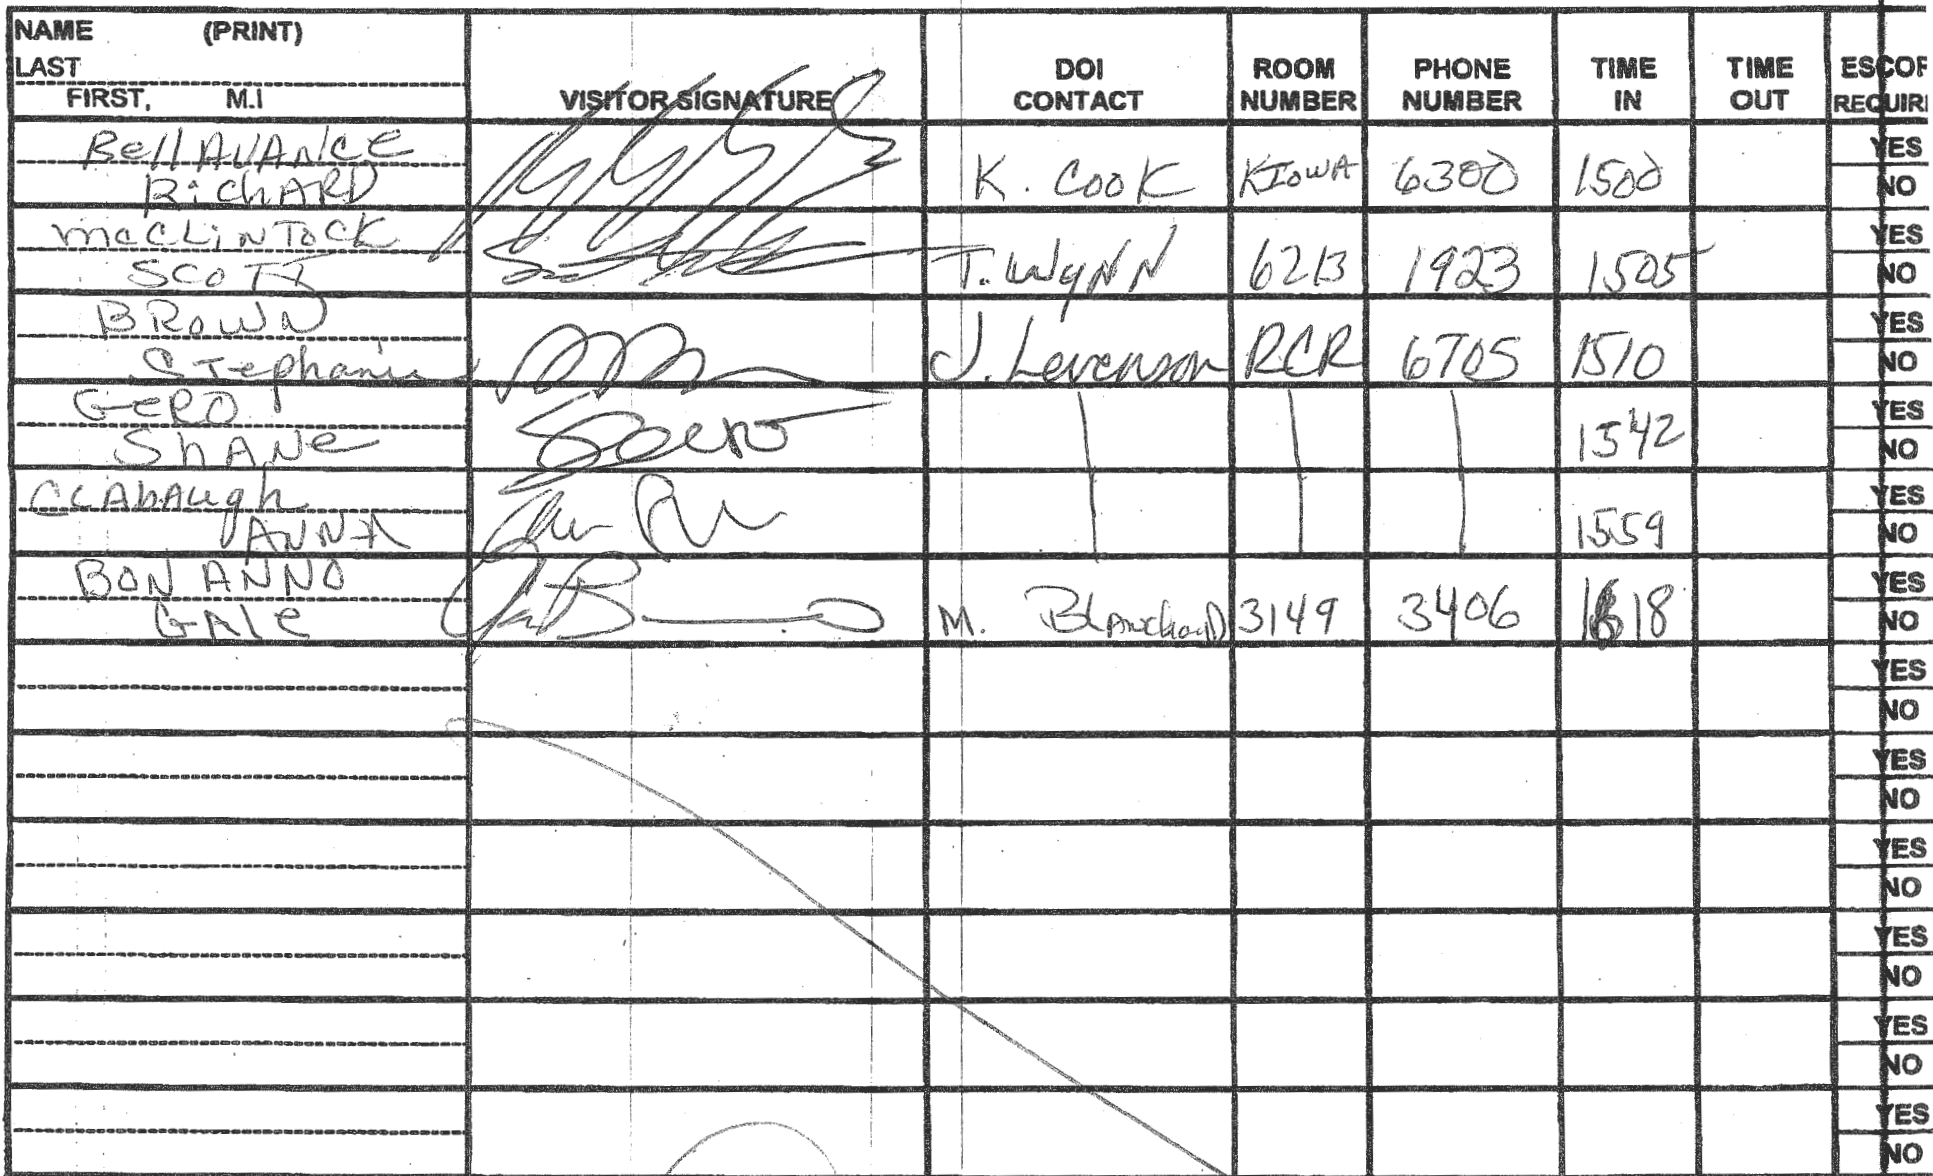 NAME (PRINT)
LAST
FIRST, M.I
VISITOR SIGNATURE
DOI CONTACT
ROOM NUMBER
PHONE NUMBER
TIME IN
TIME OUT
ESCOR REQUIRI
BellAVANCE
RicHARD
K. COOK KIOWA 6300 1500
YES
NO
McCLiNTOCK
SCOTT
T. WyNN 6213 1923 1505
YES
NO
BROWN
Stephanie
J. Levenson RCR 6705 1510
YES
NO
GeRO
ShANe
1542
YES
NO
CLAbAugh
ANNA
1559
YES
NO
BONANNO
GAle
M. BLAncharD 3149 3406 1618
YES
NO
YES
NO
YES
NO
YES
NO
YES
NO
YES
NO
YES
NO